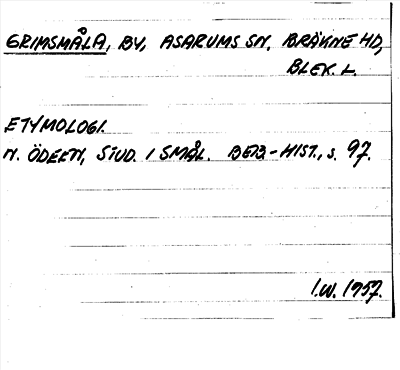 GRIMSMÅLA, BY, ASARUMS SN, BRÄKNE HD,
BLEK. L.
ETYMOLOGI.
N. ÖDEEN, STUD. I SMÅL. BEB.-HIST., S. 97.
I.W. 1957.